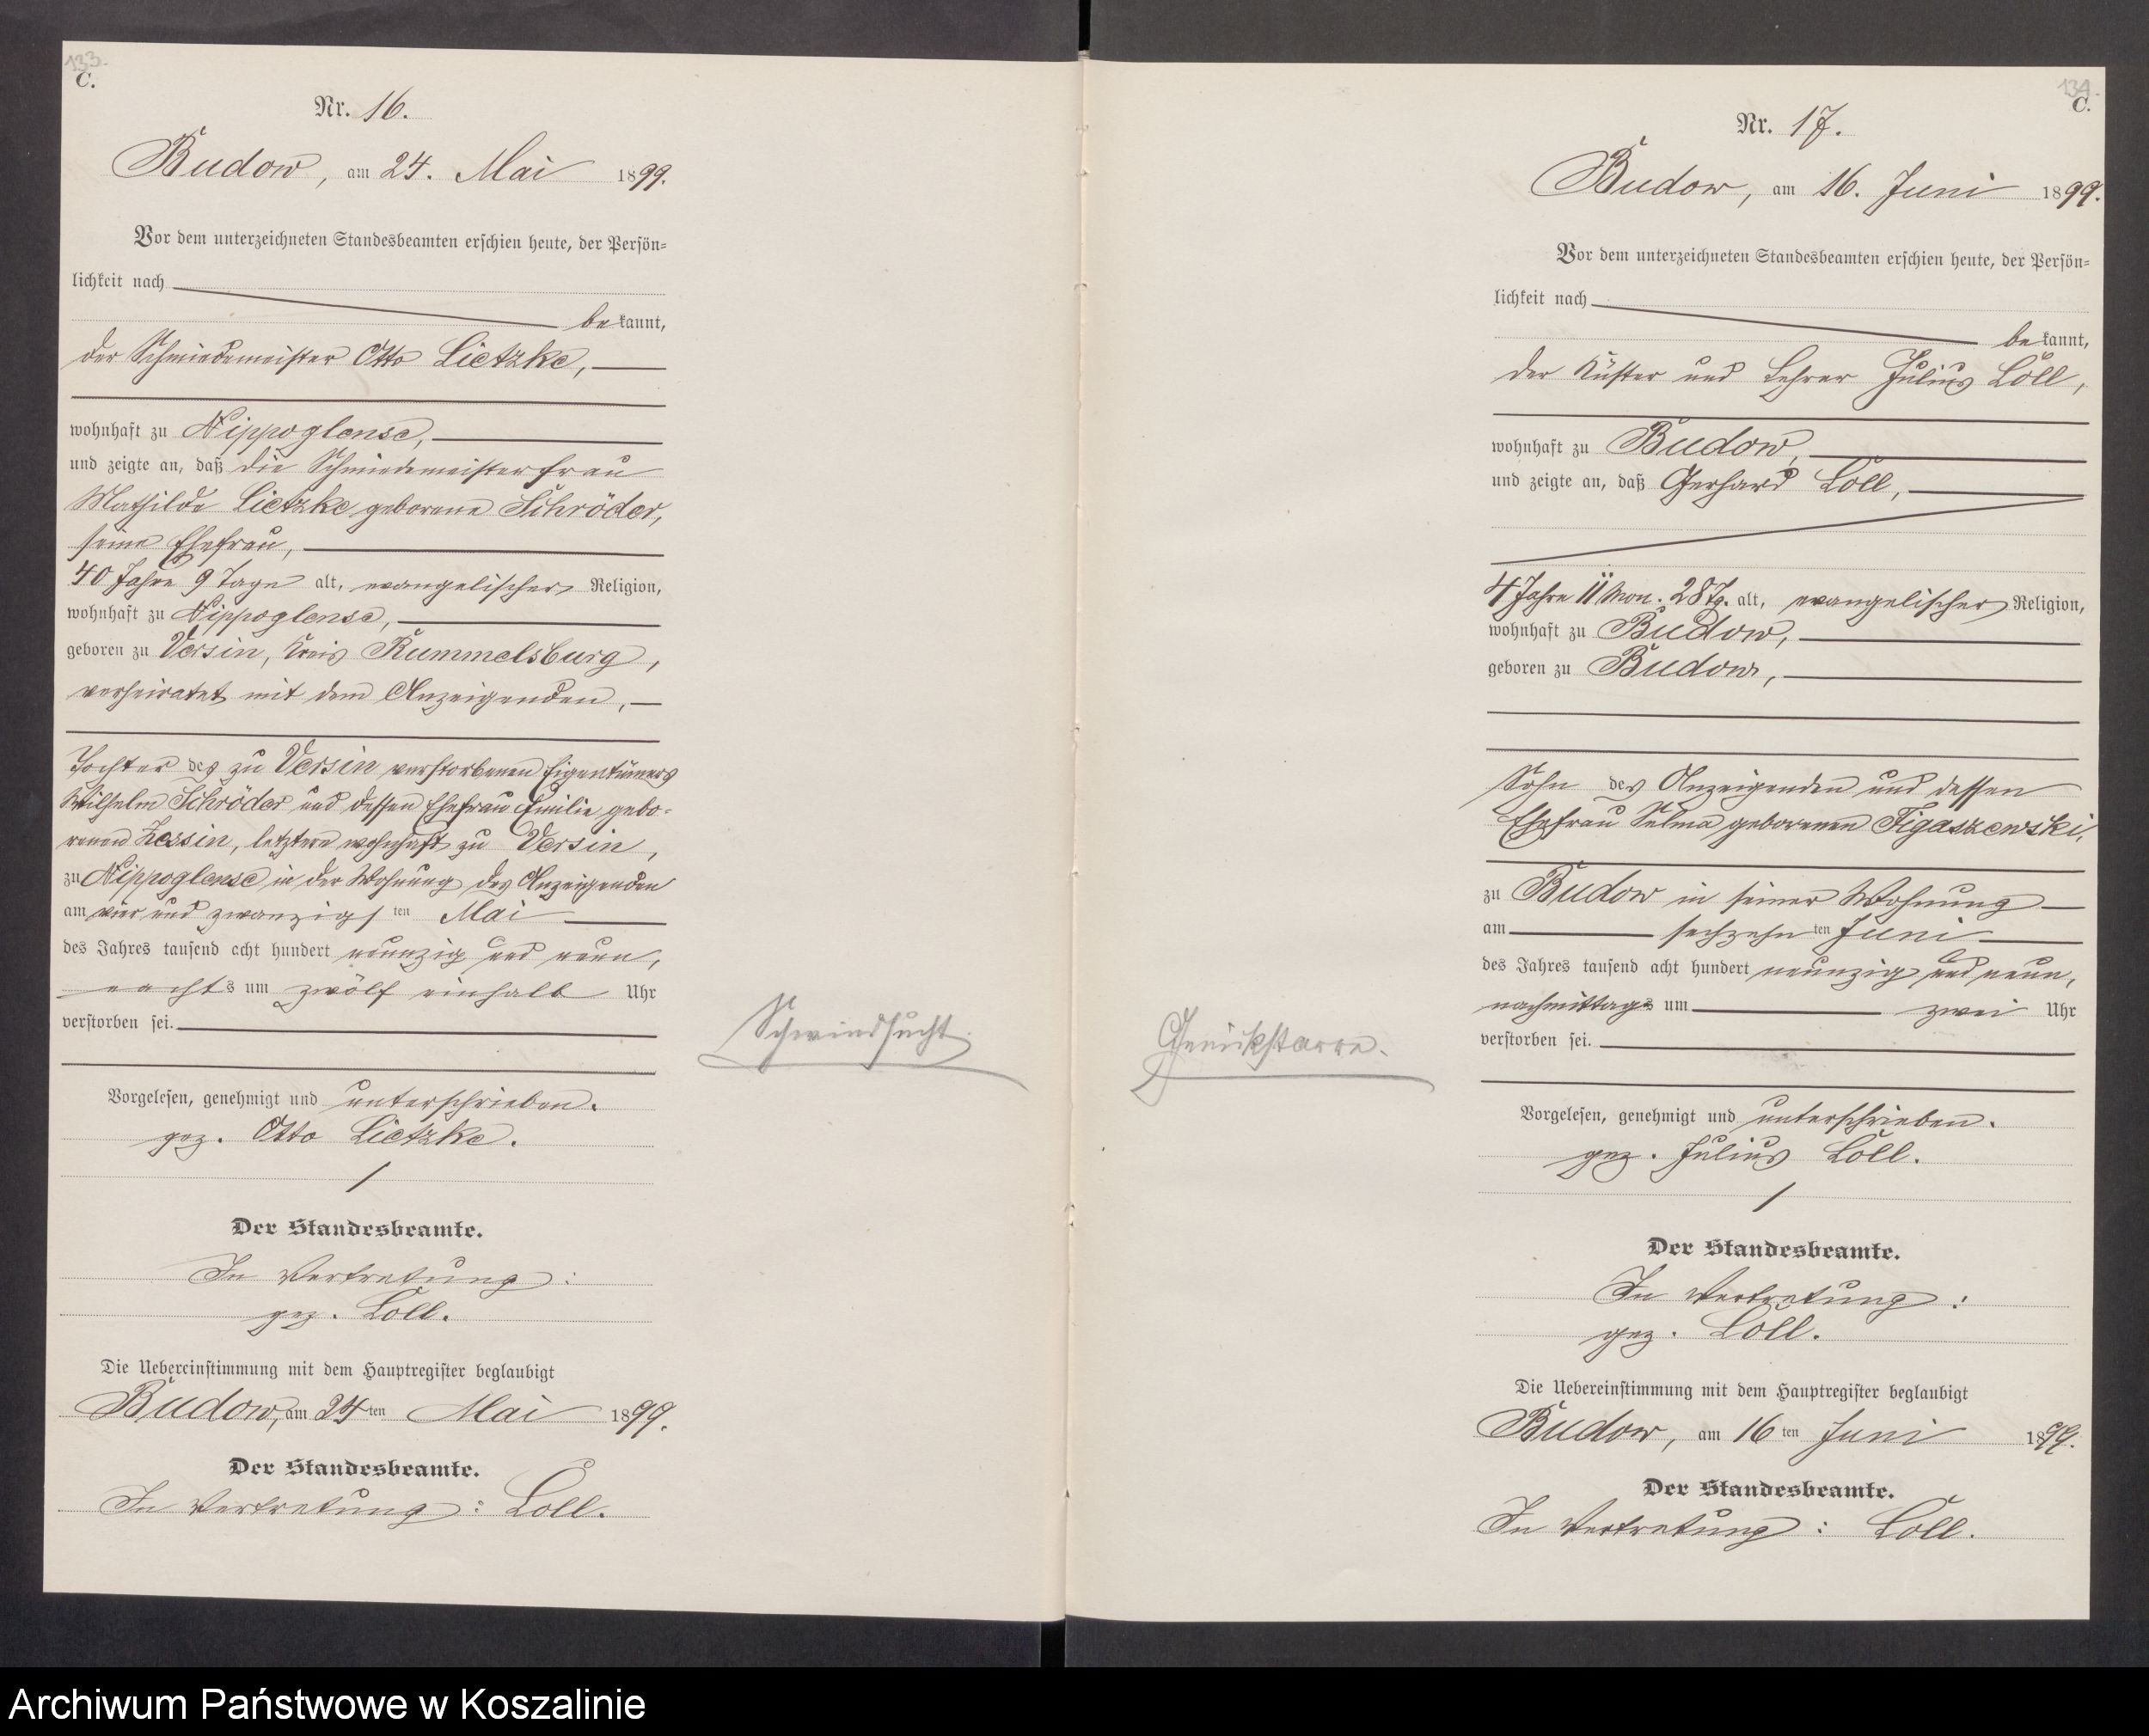 133.
C.
Nr. 16.
Budow, am 24. Mai 1899.
Vor dem unterzeichneten Standesbeamten erschien heute, der Persön-
lichkeit nach
bekannt,
der Schmiedemeister Otto Lietzke,
wohnhaft zu Nippoglense,
und zeigte an, daß die Schmiedemeisterfrau
Mathilde Lietzke geborene Schröder,
seine Ehefrau,
40 Jahre 9 Tage alt, evangelischer Religion,
wohnhaft zu Nippoglense,
geboren zu Versin, Kreis Rummelsburg,
verheiratet mit dem Anzeigenden,
Tochter des zu Versin verstorbenen Eigentümers
Wilhelm Schröder und dessen Ehefrau Emilie gebo-
renen Zessin, letztere wohnhaft zu Versin,
zu Nippoglense in der Wohnung des Anzeigenden
am vier und zwanzigsten Mai
des Jahres tausend acht hundert neunzig und neun,
nachts um zwölf einhalb Uhr
verstorben sei.
Schwindsucht.
Vorgelesen, genehmigt und unterschrieben.
gez. Otto Lietzke.
Der Standesbeamte.
In Vertretung:
gez. Löll.
Die Uebereinstimmung mit dem Hauptregister beglaubigt
Budow, am 24ten Mai 1899.
Der Standesbeamte.
In Vertretung: Löll.
134.
C.
Nr. 17.
Budow, am 16. Juni 1899.
Vor dem unterzeichneten Standesbeamten erschien heute, der Persön-
lichkeit nach
bekannt,
der Küster und Lehrer Julius Löll,
wohnhaft zu Budow,
und zeigte an, daß Gerhard Löll,
4 Jahre 11 Mon. 28 Tg. alt, evangelischer Religion,
wohnhaft zu Budow,
geboren zu Budow,
Sohn des Anzeigenden und dessen
Ehefrau Selma geborenen Figaszewski,
zu Budow in seiner Wohnung
am sechzehnten Juni
des Jahres tausend acht hundert neunzig und neun,
nachmittags um zwei Uhr
verstorben sei.
Genickstarre.
Vorgelesen, genehmigt und unterschrieben.
gez. Julius Löll.
Der Standesbeamte.
In Vertretung:
gez. Löll.
Die Uebereinstimmung mit dem Hauptregister beglaubigt
Budow, am 16ten Juni 1899.
Der Standesbeamte.
In Vertretung: Löll.
Archiwum Państwowe w Koszalinie